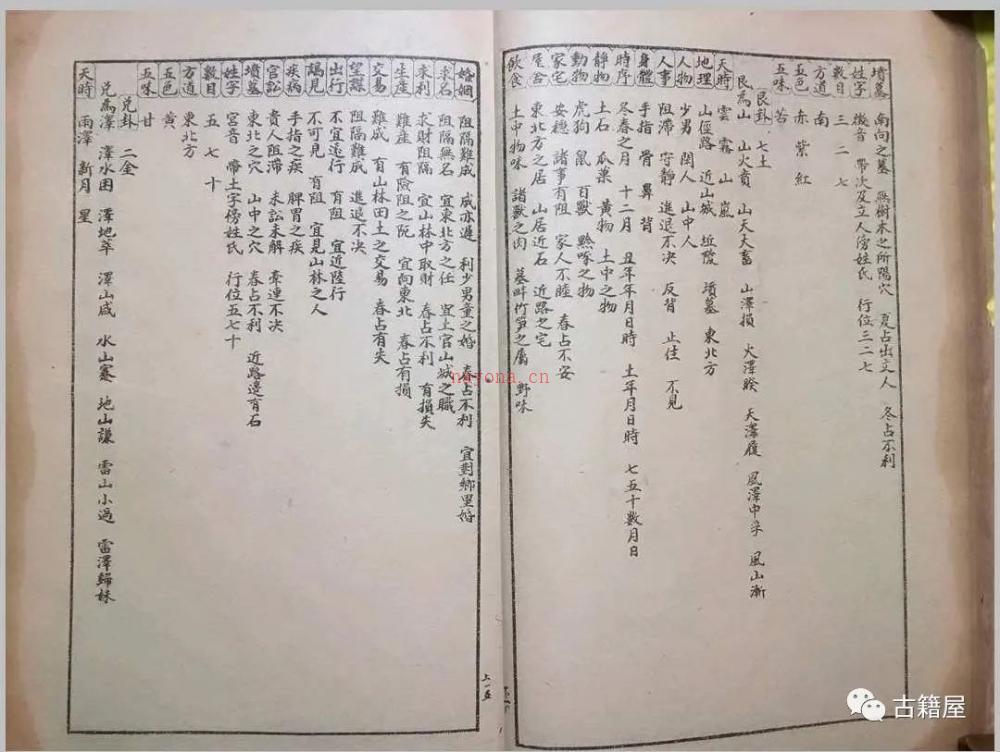 墳墓 南向之墓 無樹木之所陽穴 夏占出文人 冬占不利
姓字 徵音 帶次及立人傍姓氏 行位三二七
數目 三 二 七
方道 南
五色 赤 紫 紅
五味 苦
艮卦 七土
艮為山 山火賁 山天大畜 山澤損 火澤睽 天澤履 風澤中孚 風山漸
天時 雲 霧 山 嵐
地理 山徑路 近山城 坵陵 墳墓 東北方
人物 少男 閑人 山中人
人事 阻滯 守靜 進退不決 反背 止住 不見
身體 手指 骨 鼻 背
時序 冬春之月 十二月 丑年年月日時 土年月日時 七五十數月日
靜物 土石 瓜菓 黃物 土中之物
動物 虎狗 鼠 百獸 黔喙之物
家宅 安穩 諸事有阻 家人不睦 春占不安
屋舍 東北方之居 山居近石 近路之宅
飲食 土中物味 諸獸之肉 墓畔竹笋之屬 野味
婚姻 阻隔難成 成亦遲 利少男童之婚 春占不利 宜對鄉里婚
求名 阻隔無名 宜東北方之任 宜土官山城之職
求利 求財阻隔 宜山林中取財 春占不利 有損失
生產 難產 有險阻之阨 宜向東北 春占有損
交易 難成 有山林田土之交易 春占有失
望謀 阻隔難成 進退不決
出行 不宜遠行 有阻 宜近陸行
謁見 不可見 有阻 宜見山林之人
疾病 手指之疾 脾胃之疾
官訟 貴人阻滯 未訟未解 牽連不決
墳墓 東北之穴 山中之穴 春占不利 近路邊有石
姓字 宮音 帶土字傍姓氏 行位五七十
數目 五 七 十
方道 東北方
五色 黃
五味 甘
兌卦 二金
兌為澤 澤水困 澤地萃 澤山咸 水山蹇 地山謙 雷山小過 雷澤歸妹
天時 雨澤 新月 星
上一五
nayona.cn
古籍屋